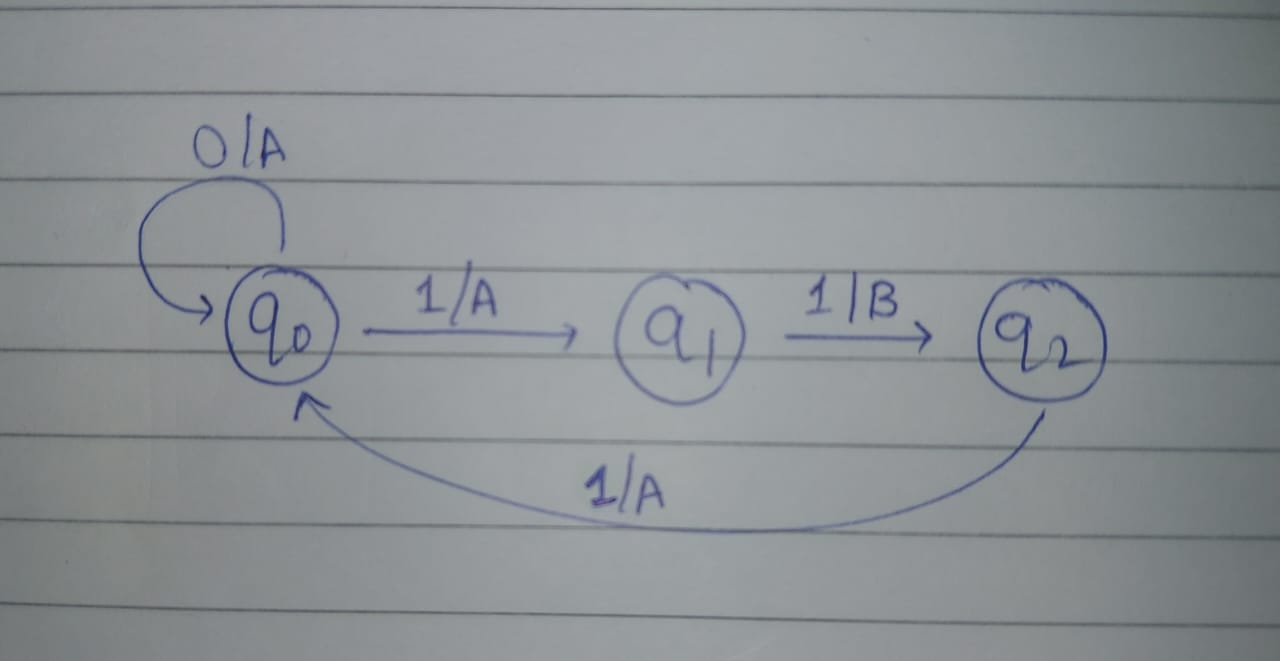 0/A
q0 1/A q1 1/B q2
1/A